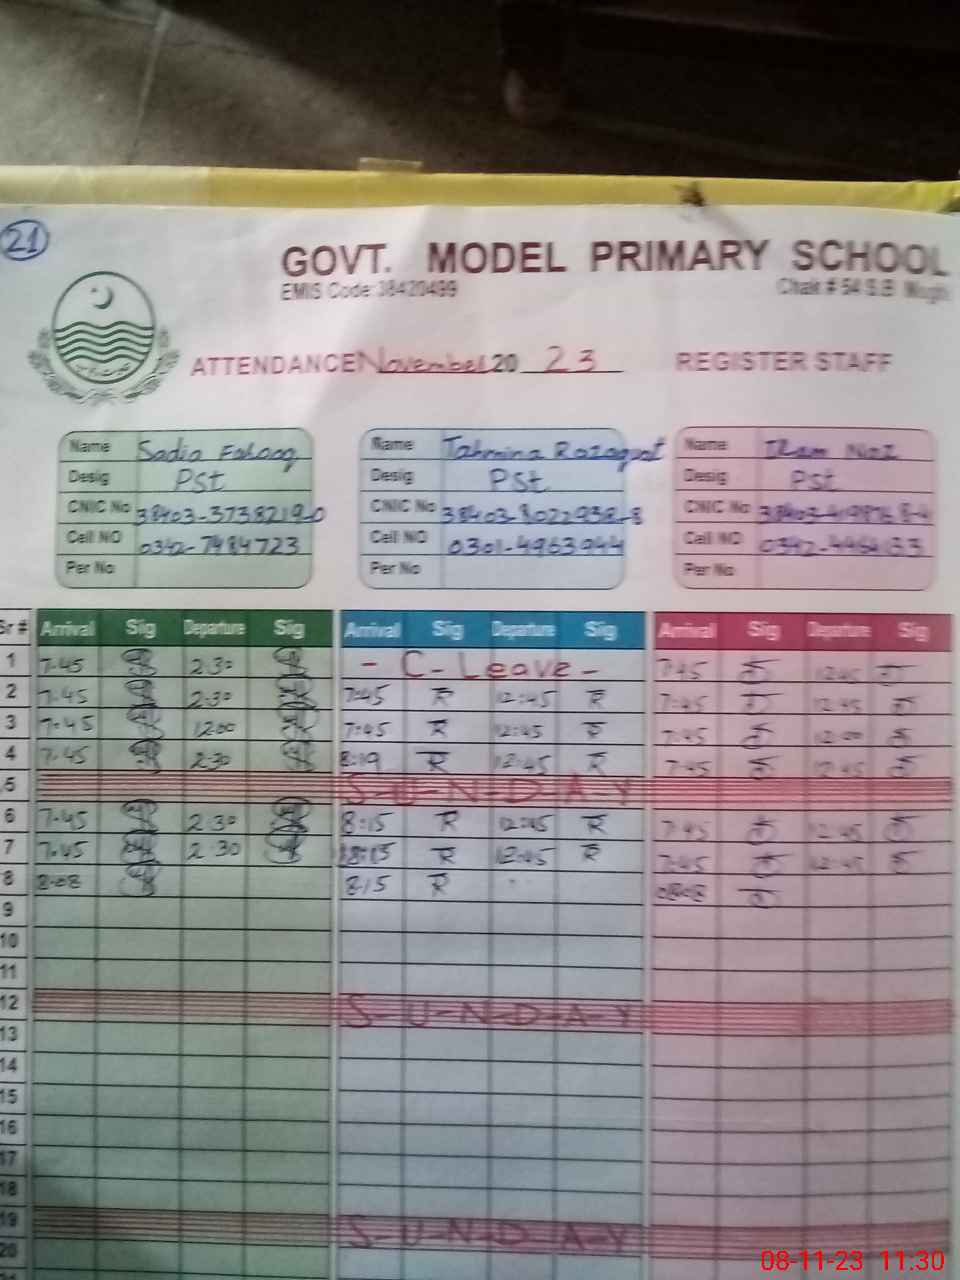 21
GOVT. MODEL PRIMARY SCHOOL
EMIS Code:38420499 Chak # 54 S.B
ATTENDANCE November 20 23 REGISTER STAFF
Name Sadia Name Tahmina Name
Desig Pst Desig Pst Desig Pst
CNIC No 38403-3738219-0 CNIC No 38403-8022938-8 CNIC No
Cell NO 0342-7484723 Cell NO 0301-4963944 Cell NO
Per No Per No Per No
Sr # Arrival Sig Departure Sig Arrival Sig Departure Sig Arrival Sig Departure Sig
1 7.45 2:30 - C- Leave - 7:45 12:45
2 7.45 2:30 7:45 R 12:45 R 7:45 12:45
3 7.45 12:00 7:45 R 12:45 R 7:45 12:00
4 7.45 2:30 8:19 R 12:45 R 7:45 12:45
5 S-U-N-D-A-Y
6 7.45 2:30 8:15 R 12:45 R 7:45 12:45
7 7.45 2:30 R 12:45 R 7:45 12:45
8 8:08 8:15 R
9
10
11
12 S-U-N-D-A-Y
13
14
15
16
17
18
19 S-U-N-D-A-Y
20
08-11-23 11:30